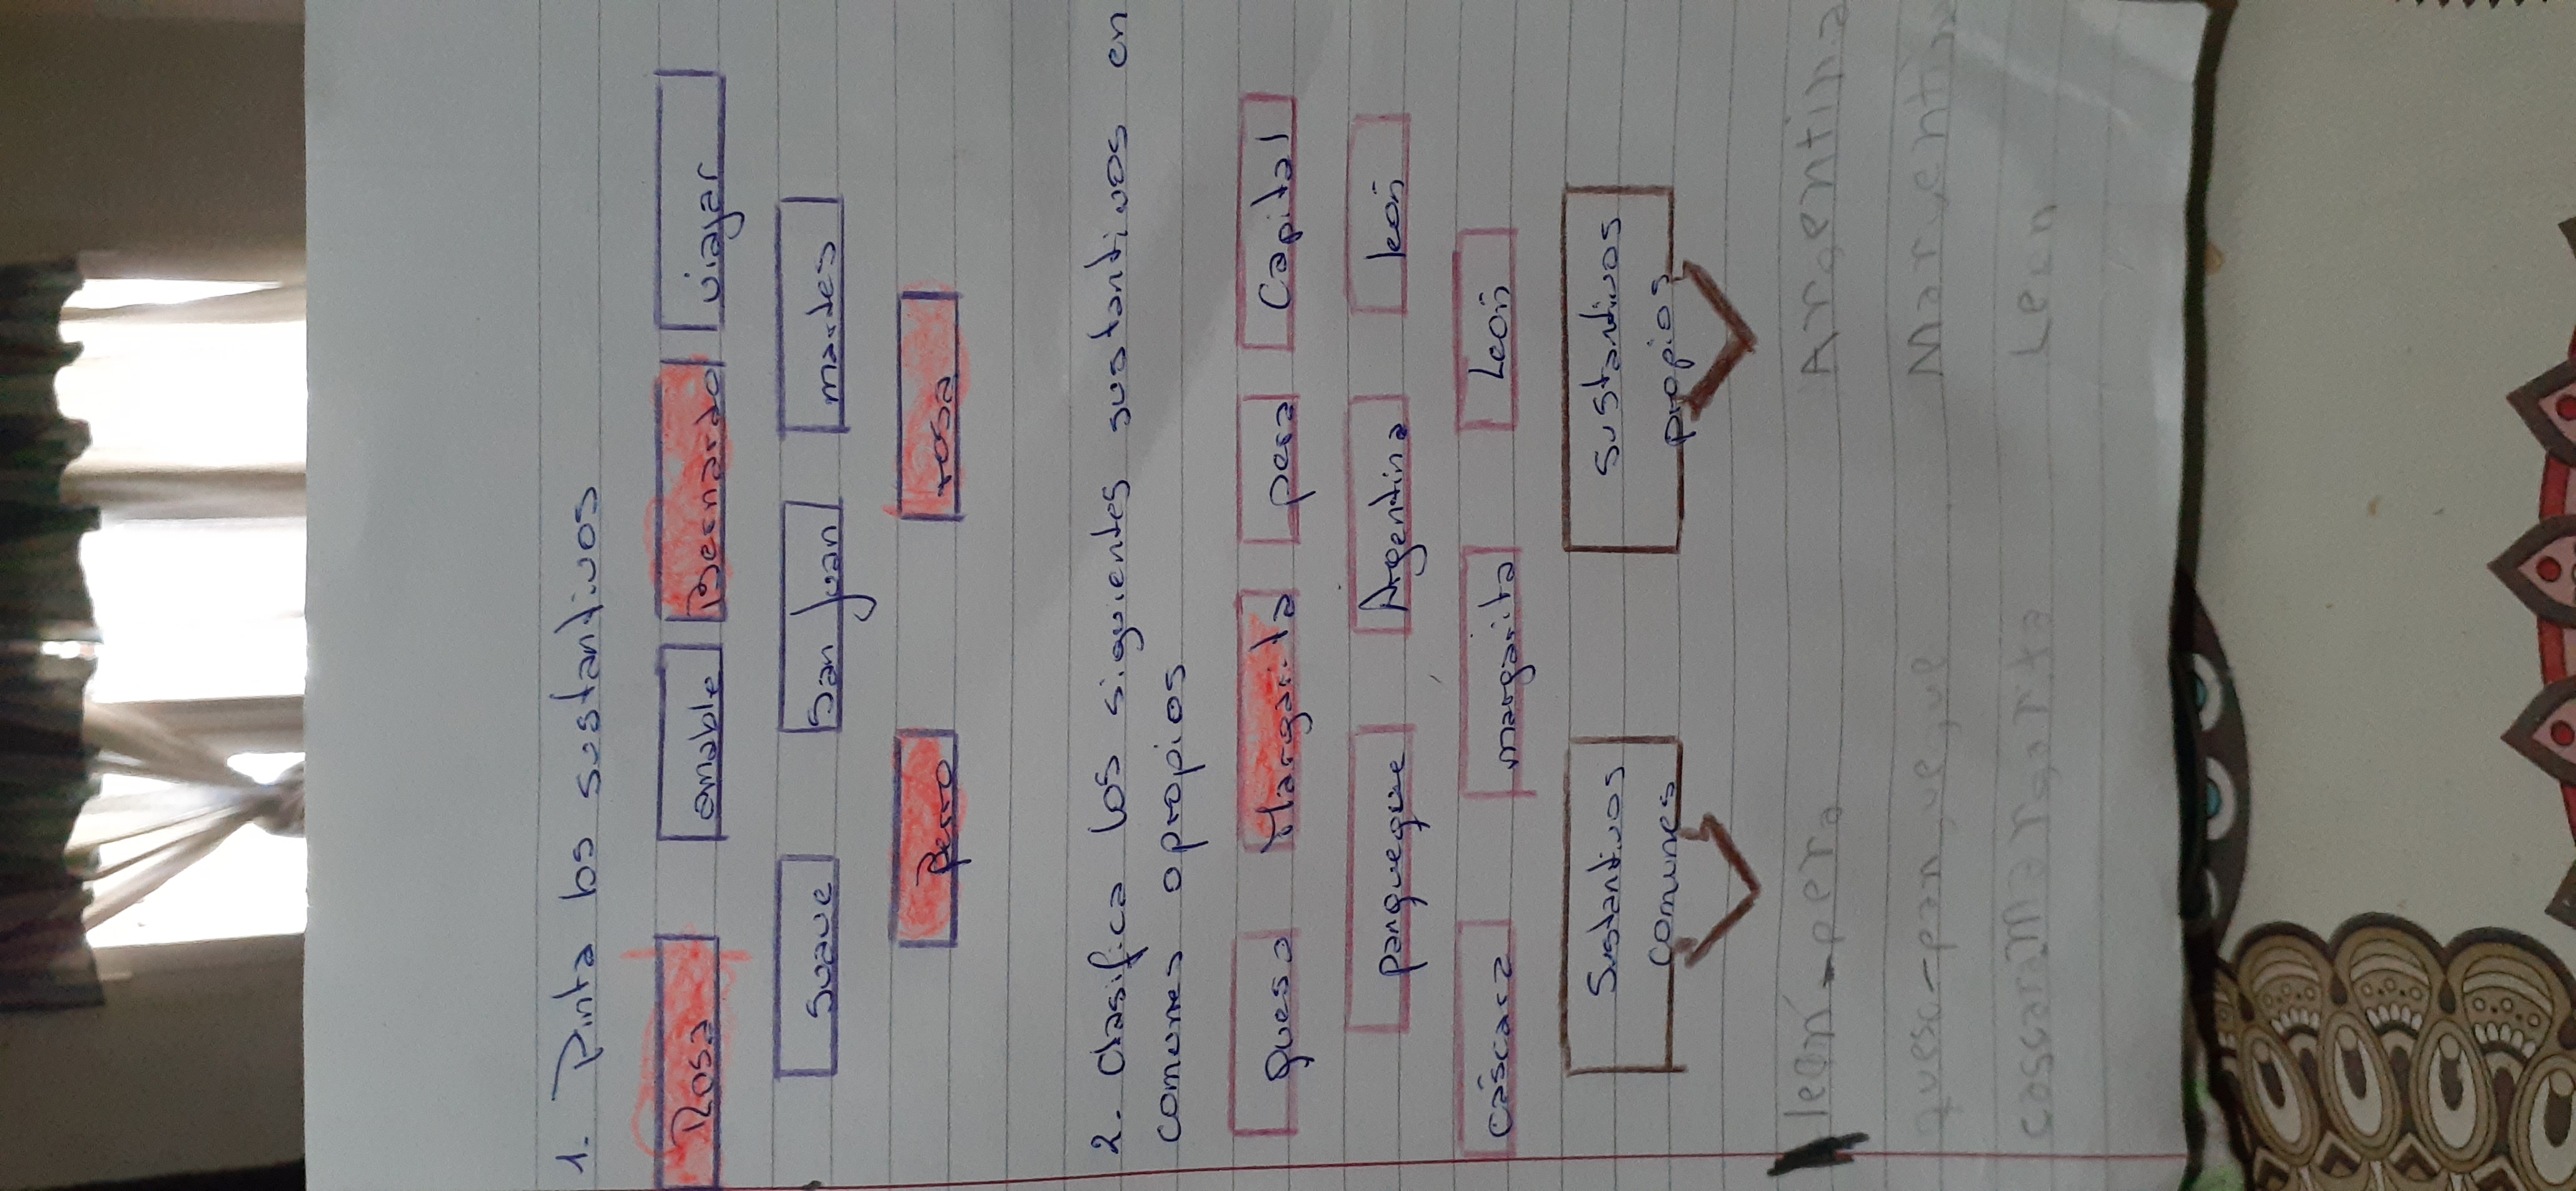 1. Pinta los sustantivos
Rosa amable Bernardo viajar
Suave San Juan martes
Perro rosa
2. Clasifica los siguientes sustantivos en
comunes o propios
queso Margarita pera Capital
panqueque Argentina león
cáscara margarita León
Sustantivos Sustantivos
comunes propios
león - pera Argentina
queso - panqueque
cascara León